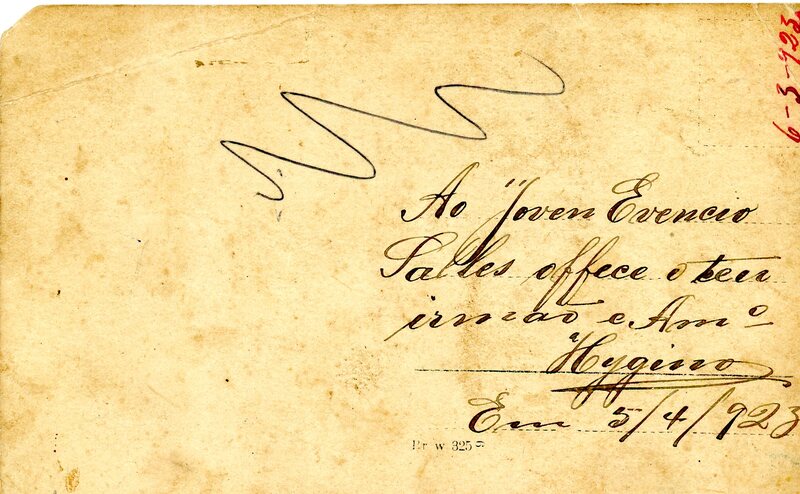 6-3-923
Ao Joven Evencio
Salles offece o teu
irmaõ e Amº
Hygino
Em 5/4/923